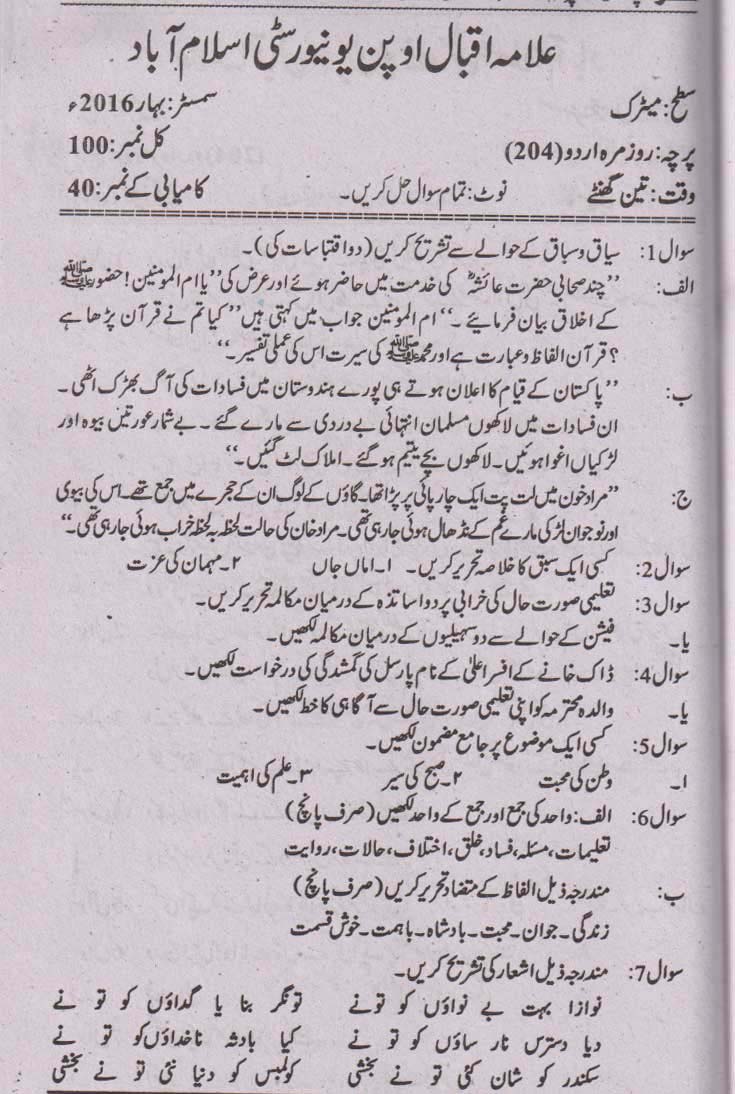 علامہ اقبال اوپن یونیورسٹی اسلام آباد
سطح: میٹرک سمسٹر: بہار 2016ء
پرچہ: روزمرہ اردو (204) کل نمبر: 100
وقت: تین گھنٹے نوٹ: تمام سوال حل کریں۔ کامیابی کے نمبر: 40
سوال 1: سیاق و سباق کے حوالے سے تشریح کریں (دو اقتباسات کی)۔
الف: ’’چند صحابی حضرت عائشہؓ کی خدمت میں حاضر ہوئے اور عرض کی ’’یا ام المومنین! حضور ﷺ
کے اخلاق بیان فرمائیے۔‘‘ ام المومنین جواب میں کہتی ہیں ’’کیا تم نے قرآن پڑھا ہے
؟ قرآن الفاظ و عبارت ہے اور محمد ﷺ کی سیرت اس کی عملی تفسیر۔‘‘
ب: ’’پاکستان کے قیام کا اعلان ہوتے ہی پورے ہندوستان میں فسادات کی آگ بھڑک اٹھی۔
ان فسادات میں لاکھوں مسلمان انتہائی بے دردی سے مارے گئے۔ بے شمار عورتیں بیوہ اور
لڑکیاں اغوا ہوئیں۔ لاکھوں بچے یتیم ہو گئے۔ املاک لٹ گئیں۔‘‘
ج: ’’مراد خون میں لت پت ایک چارپائی پر پڑا تھا۔ گاؤں کے لوگ ان کے حجرے میں جمع تھے۔ اس کی بیوی
اور نوجوان لڑکی مارے غم کے نڈھال ہوئی جا رہی تھی۔ مراد خان کی حالت لحظہ بہ لحظہ خراب ہوئی جا رہی تھی۔‘‘
سوال 2: کسی ایک سبق کا خلاصہ تحریر کریں۔ ۱۔ اماں جاں ۲۔ مہمان کی عزت
سوال 3: تعلیمی صورت حال کی خرابی پر دو اساتذہ کے درمیان مکالمہ تحریر کریں۔
یا۔ فیشن کے حوالے سے دو سہیلیوں کے درمیان مکالمہ لکھیں۔
سوال 4: ڈاک خانے کے افسر اعلیٰ کے نام پارسل کی گمشدگی کی درخواست لکھیں۔
یا۔ والدہ محترمہ کو اپنی تعلیمی صورت حال سے آگاہی کا خط لکھیں۔
سوال 5: کسی ایک موضوع پر جامع مضمون لکھیں۔
۱۔ وطن کی محبت ۲۔ صبح کی سیر ۳۔ علم کی اہمیت
سوال 6: الف: واحد کی جمع اور جمع کے واحد لکھیں (صرف پانچ)
تعلیمات، مسئلہ، فساد، خلق، اختلاف، حالات، روایت
ب: مندرجہ ذیل الفاظ کے متضاد تحریر کریں (صرف پانچ)
زندگی۔ جوان۔ محبت۔ بادشاہ۔ باہمت۔ خوش قسمت
سوال 7: مندرجہ ذیل اشعار کی تشریح کریں۔
نوازا بہت بے نواؤں کو تو نے تونگر بنا یا گداؤں کو تو نے
دیا دسترس نار ساؤں کو تو نے کیا بادشہ ناخداؤں کو تو نے
سکندر کو شان کئی تو نے بخشی کولمبس کو دنیا نئی تو نے بخشی